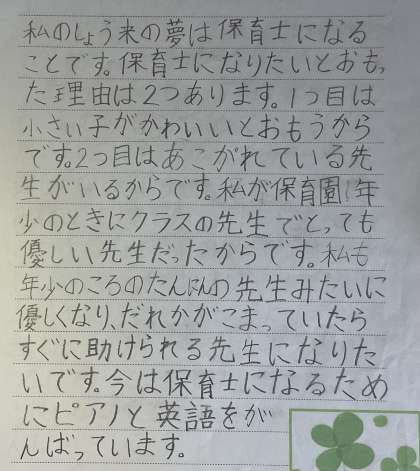 私のしょう来の夢は保育士になる
ことです。保育士になりたいとおもっ
た理由は2つあります。1つ目は
小さい子がかわいいとおもうから
です。2つ目はあこがれている先
生がいるからです。私が保育園年
少のときにクラスの先生でとっても
優しい先生だったからです。私も
年少のころのたんにんの先生みたいに
優しくなり、だれかがこまっていたら
すぐに助けられる先生になりた
いです。今は保育士になるため
にピアノと英語をが
んばっています。